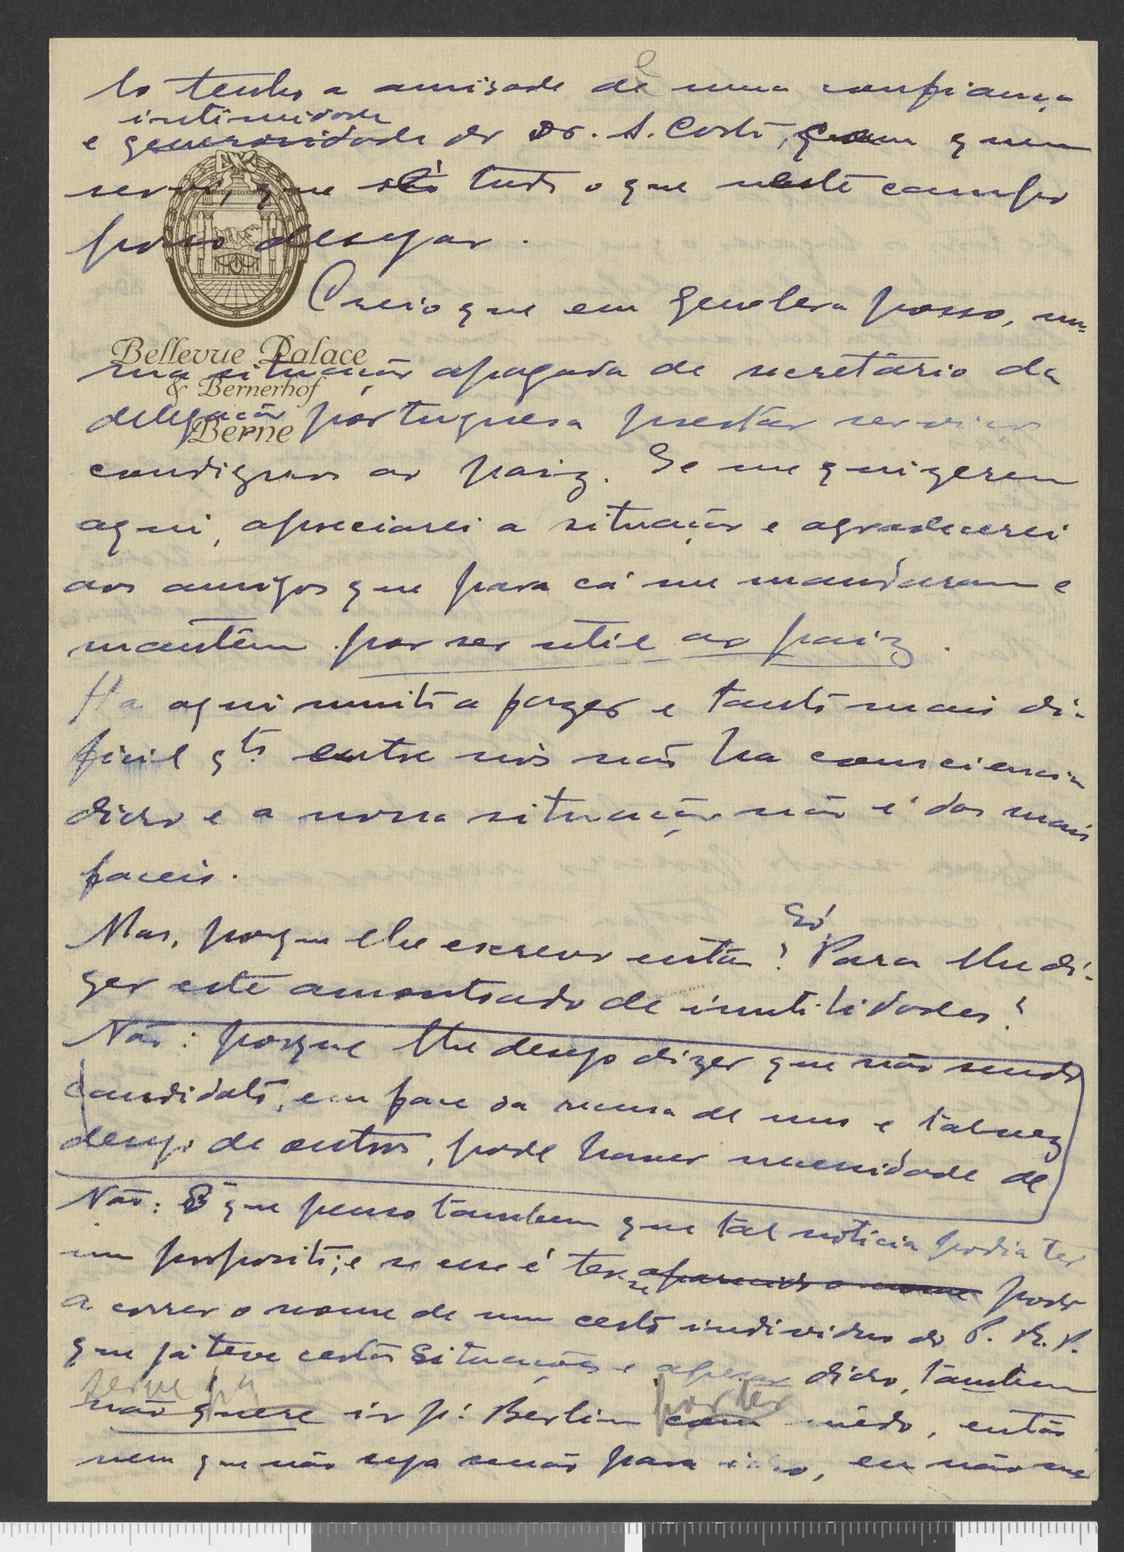 lo tenho a amisade de uma confiança
intimidade
e generosidade do Dr. A. Costa, quem
servi, que são tudo o que neste campo
posso desejar.
Creio que em Genebra posso, nu-
Bellevue Palace
ma situação apagada de secretário da
& Bernerhof
delegação portuguesa prestar serviços
Berne
condignos ao paiz. Se me quizerem
aqui, apreciarei a situação e agradecerei
aos amigos que para cá me mandaram e
mantêm por ser util ao paiz.
Ha aqui muito a fazer e tanto mais di-
ficil qto entre nós não ha consciencia
disso e a nossa situação não é das mais
faceis.
Só
Mas, porque lhe escrevo então? Para lhe di-
zer este amontoado de inutilidades?
Não: porque lhe desejo dizer que não sendo
candidato, em face da recusa de uns e talvez
desejo de outros, pode haver necessidade de
Não: É que penso tambem que tal noticia podia ter
um proposito; e se esse é ter-se aparecido o nome posto
a correr o nome de um certo individuo do P. R. P.
que já teve certas situações e apesar disso, tambem
serve pa
não quere ir pª Berlim com mêdo, então
por ter
nem que não seja senão para isso, eu não me